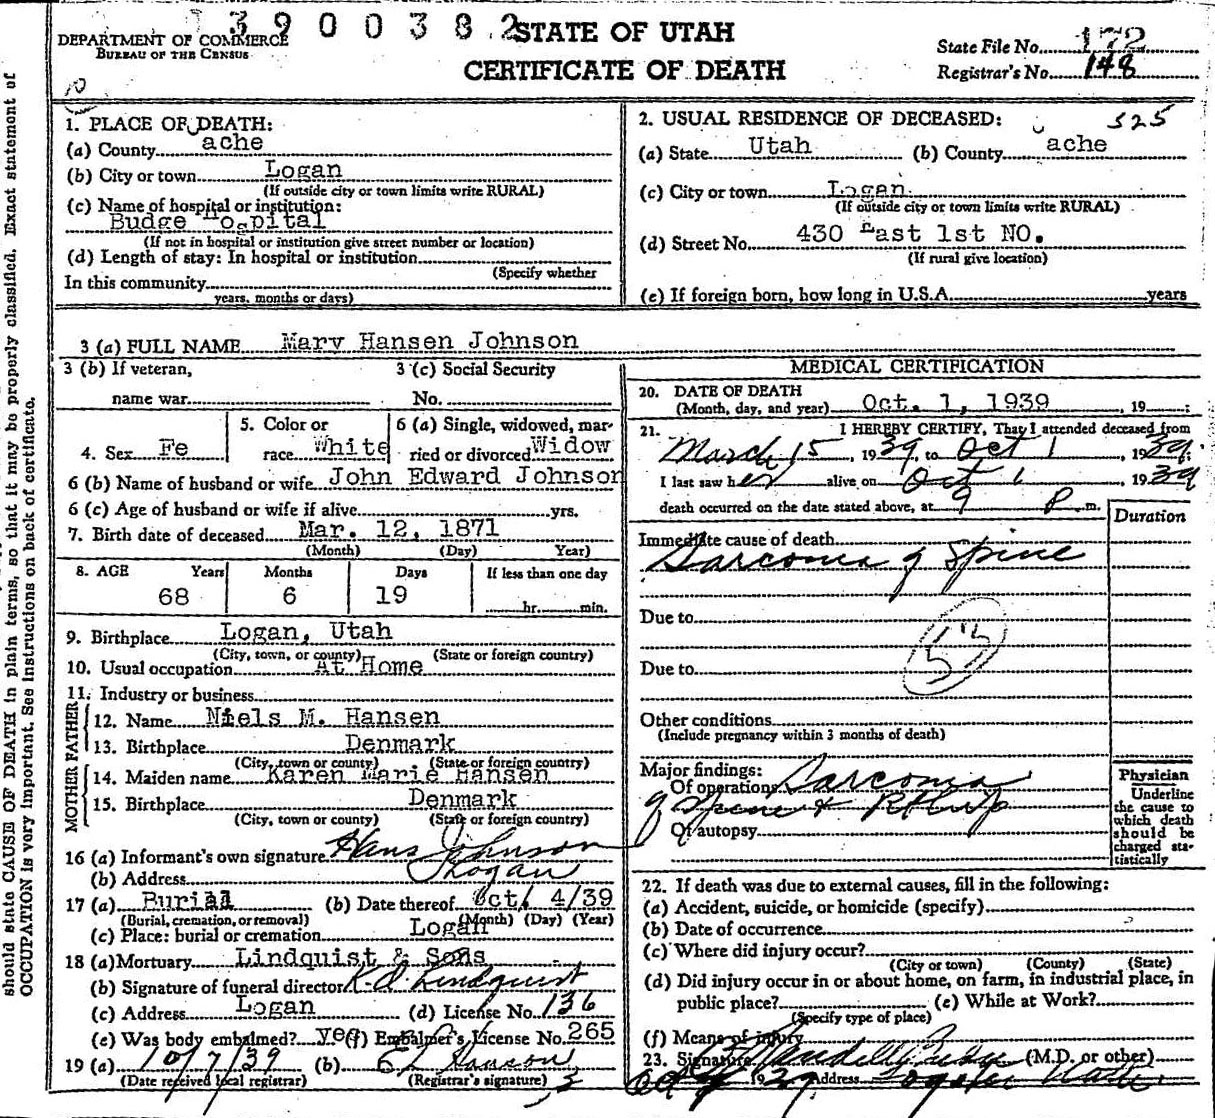 3900382
STATE OF UTAH
DEPARTMENT OF COMMERCE
BUREAU OF THE CENSUS
CERTIFICATE OF DEATH
State File No. 172
Registrar's No. 148
1. PLACE OF DEATH:
(a) County ache
(b) City or town Logan
(If outside city or town limits write RURAL)
(c) Name of hospital or institution:
Budge Hospital
(If not in hospital or institution give street number or location)
(d) Length of stay: In hospital or institution
(Specify whether
In this community
years, months or days)
2. USUAL RESIDENCE OF DECEASED: 525
(a) State Utah (b) County ache
(c) City or town Logan
(If outside city or town limits write RURAL)
(d) Street No. 430 East 1st NO.
(If rural give location)
(e) If foreign born, how long in U.S.A. years
3 (a) FULL NAME Mary Hansen Johnson
3 (b) If veteran, 3 (c) Social Security
name war No.
4. Sex Fe 5. Color or race White 6 (a) Single, widowed, married or divorced Widow
6 (b) Name of husband or wife John Edward Johnson
6 (c) Age of husband or wife if alive yrs.
7. Birth date of deceased Mar. 12, 1871
(Month) (Day) Year)
8. AGE Years Months Days If less than one day
68 6 19 hr. min.
9. Birthplace Logan, Utah
(City, town, or county) (State or foreign country)
10. Usual occupation At Home
11. Industry or business
FATHER
12. Name Niels M. Hansen
13. Birthplace Denmark
(City, town or county) (State or foreign country)
MOTHER
14. Maiden name Karen Marie Hansen
15. Birthplace Denmark
(City, town or county) (State or foreign country)
16 (a) Informant's own signature Hans Johnson
(b) Address Logan
17 (a) Burial (b) Date thereof Oct/ 4/39
(Burial, cremation, or removal) (Month) (Day) (Year)
(c) Place: burial or cremation Logan
18 (a) Mortuary Lindquist & Sons
(b) Signature of funeral director K. O. Lindquist
(c) Address Logan (d) License No. 136
(e) Was body embalmed? yes (f) Embalmer's License No. 265
19 (a) 10/7/39 (b)
(Date received local registrar) (Registrar's signature)
MEDICAL CERTIFICATION
20. DATE OF DEATH
(Month, day, and year) Oct. 1, 1939, 19
21. I HEREBY CERTIFY, That I attended deceased from
March 15, 1939, to Oct 1, 1939.
I last saw her alive on Oct 1, 1939
death occurred on the date stated above, at 9 P m.
Duration
Immediate cause of death
Sarcoma of Spine
Due to
Due to
Other conditions
(Include pregnancy within 3 months of death)
Major findings:
Of operations Sarcoma
of Spine &
Of autopsy
Physician
Underline
the cause to
which death
should be
charged sta-
tistically
22. If death was due to external causes, fill in the following:
(a) Accident, suicide, or homicide (specify)
(b) Date of occurrence
(c) Where did injury occur?
(City or town) (County) (State)
(d) Did injury occur in or about home, on farm, in industrial place, in
public place? (e) While at Work?
(Specify type of place)
(f) Means of injury
23. Signature (M.D. or other)
1939 Address Logan Utah
should state CAUSE OF DEATH in plain terms, so that it may be properly classified. Exact statement of
OCCUPATION is very important. See instructions on back of certificate.